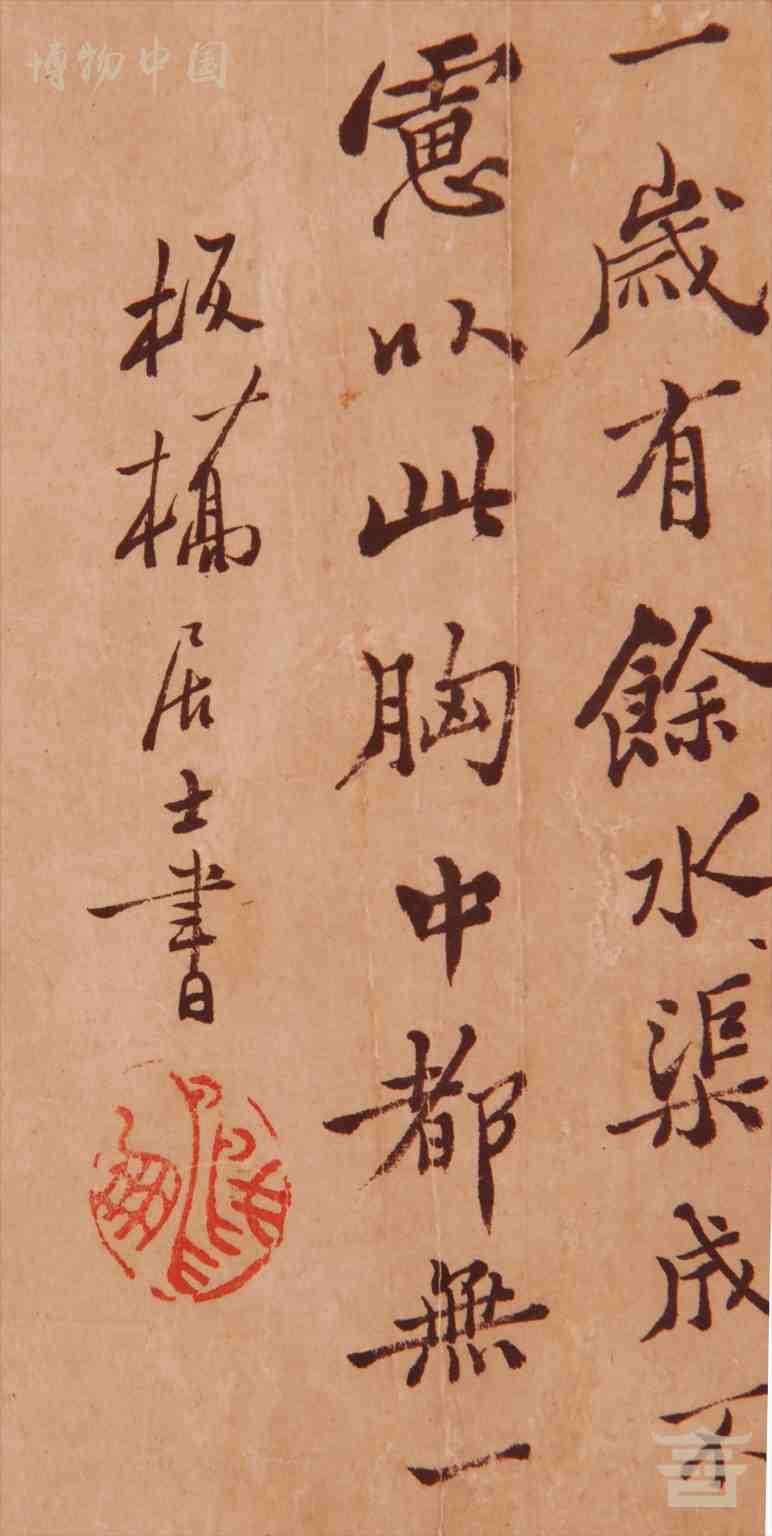 博物中国
一歲有餘水渠成不
慮以此胸中都無一
板橋居士書